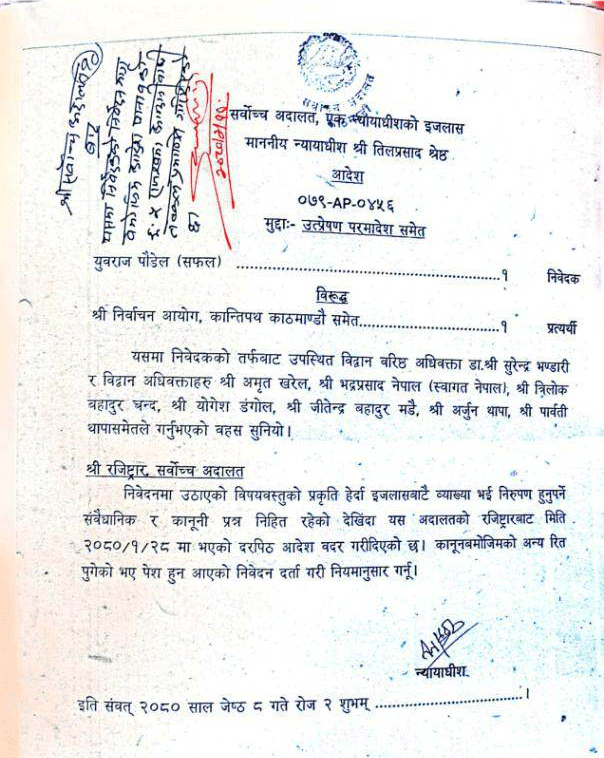 सर्वोच्च अदालत
सर्वोच्च अदालत, एक न्यायाधीशको इजलास
माननीय न्यायाधीश श्री तिलप्रसाद श्रेष्ठ
आदेश
०७९-AP-०४५६
मुद्दाः- उत्प्रेषण परमादेश समेत
युवराज पौडेल (सफल) ........................................................१ निवेदक
विरूद्ध
श्री निर्वाचन आयोग, कान्तिपथ काठमाण्डौ समेत..............................१ प्रत्यर्थी
यसमा निवेदकको तर्फवाट उपस्थित विद्वान वरिष्ठ अधिवक्ता डा.श्री सुरेन्द्र भण्डारी
र विद्वान अधिवक्ताहरु श्री अमृत खरेल, श्री भद्रप्रसाद नेपाल (स्वागत नेपाल), श्री त्रिलोक
बहादुर चन्द, श्री योगेश डंगोल, श्री जीतेन्द्र बहादुर मडै, श्री अर्जुन थापा, श्री पार्वती
थापासमेतले गर्नुभएको वहस सुनियो।
श्री रजिष्ट्रार, सर्वोच्च अदालत
निवेदनमा उठाएको विषयवस्तुको प्रकृति हेर्दा इजलासबाटै व्याख्या भई निरुपण हुनुपर्ने
संवैधानिक र कानूनी प्रश्न निहित रहेको देखिंदा यस अदालतको रजिष्ट्रारबाट मिति
२०८०/१/२८ मा भएको दरपिठ आदेश बदर गरीदिएको छ। कानूनबमोजिमको अन्य रित
पुगेको भए पेश हुन आएको निवेदन दर्ता गरी नियमानुसार गर्नू।
न्यायाधीश
इति संवत् २०८० साल जेष्ठ ८ गते रोज २ शुभम् ....................................।